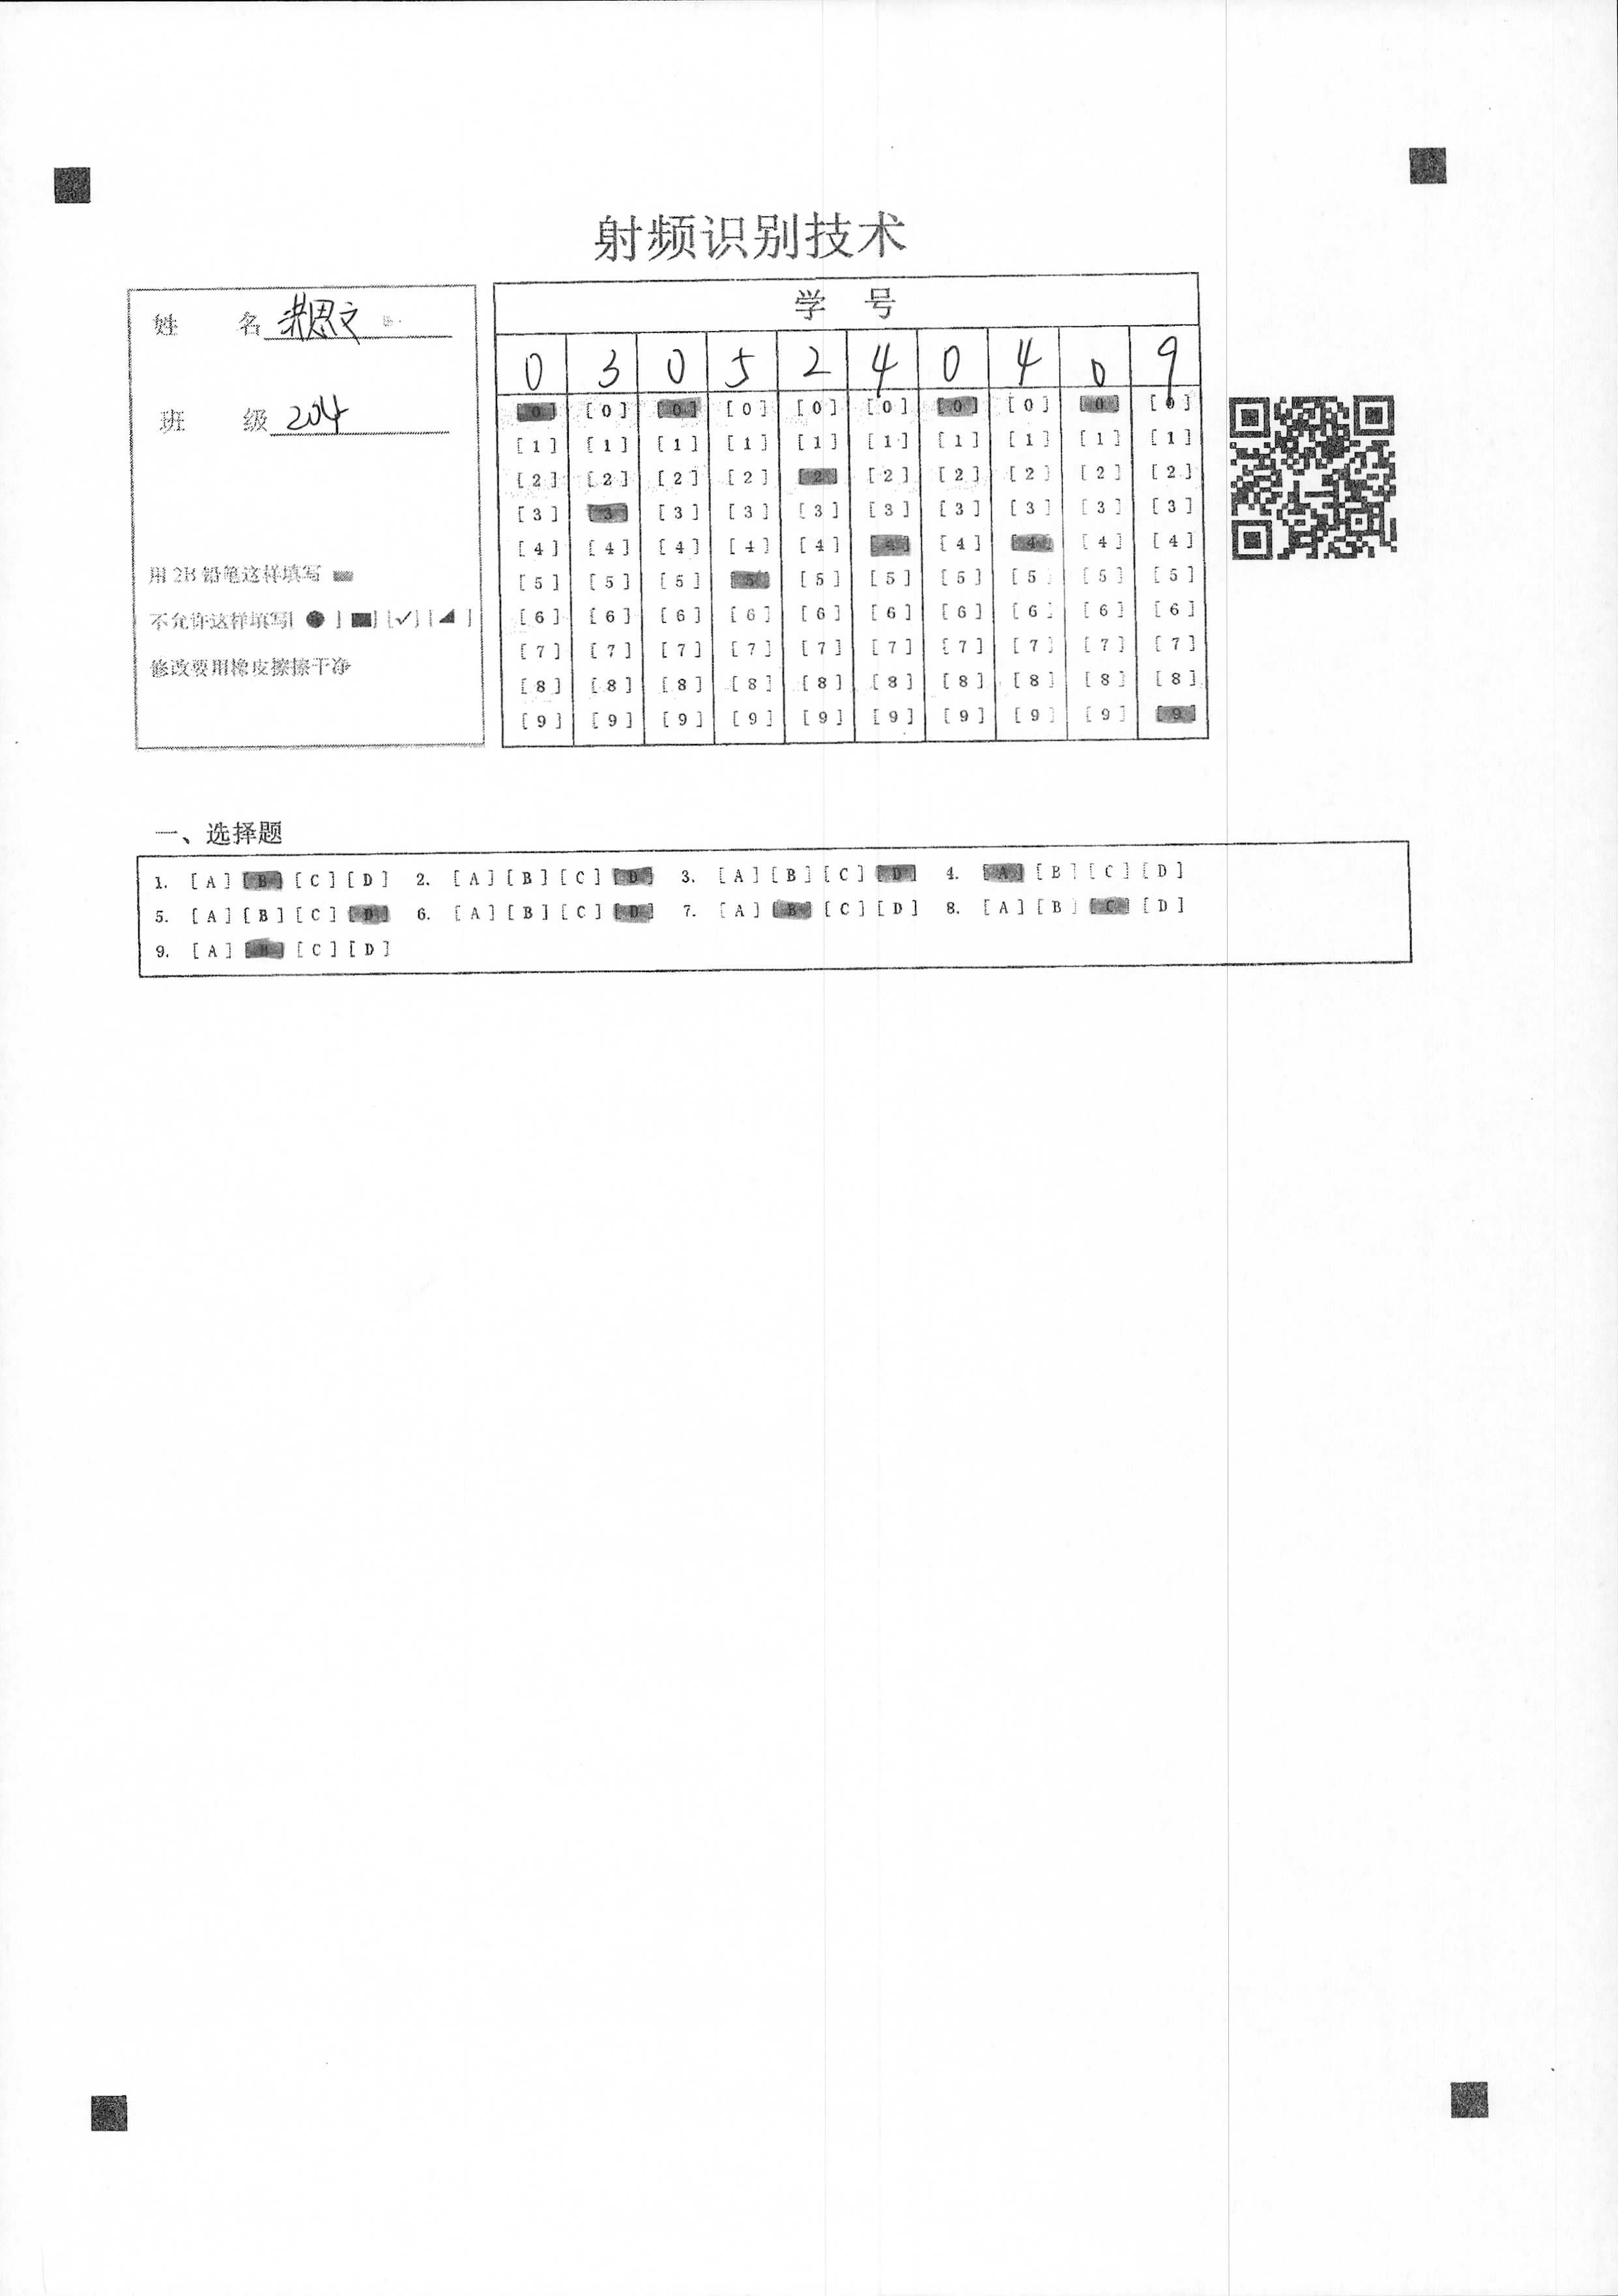 射频识别技术
姓 名 思文
班 级 204
用 2B 铅笔这样填写
不允许这样填写[ ● ] [■] [✓] [◢ ]
修改要用橡皮擦擦干净
学 号
0 3 0 5 2 4 0 4 0 9
[0] [0] [0] [0] [0] [0] [0] [0] [0] [0]
[1] [1] [1] [1] [1] [1] [1] [1] [1] [1]
[2] [2] [2] [2] [2] [2] [2] [2] [2] [2]
[3] [3] [3] [3] [3] [3] [3] [3] [3] [3]
[4] [4] [4] [4] [4] [4] [4] [4] [4] [4]
[5] [5] [5] [5] [5] [5] [5] [5] [5] [5]
[6] [6] [6] [6] [6] [6] [6] [6] [6] [6]
[7] [7] [7] [7] [7] [7] [7] [7] [7] [7]
[8] [8] [8] [8] [8] [8] [8] [8] [8] [8]
[9] [9] [9] [9] [9] [9] [9] [9] [9] [9]
一、选择题
1. [A] [B] [C] [D] 2. [A] [B] [C] [D] 3. [A] [B] [C] [D] 4. [A] [B] [C] [D]
5. [A] [B] [C] [D] 6. [A] [B] [C] [D] 7. [A] [B] [C] [D] 8. [A] [B] [C] [D]
9. [A] [B] [C] [D]